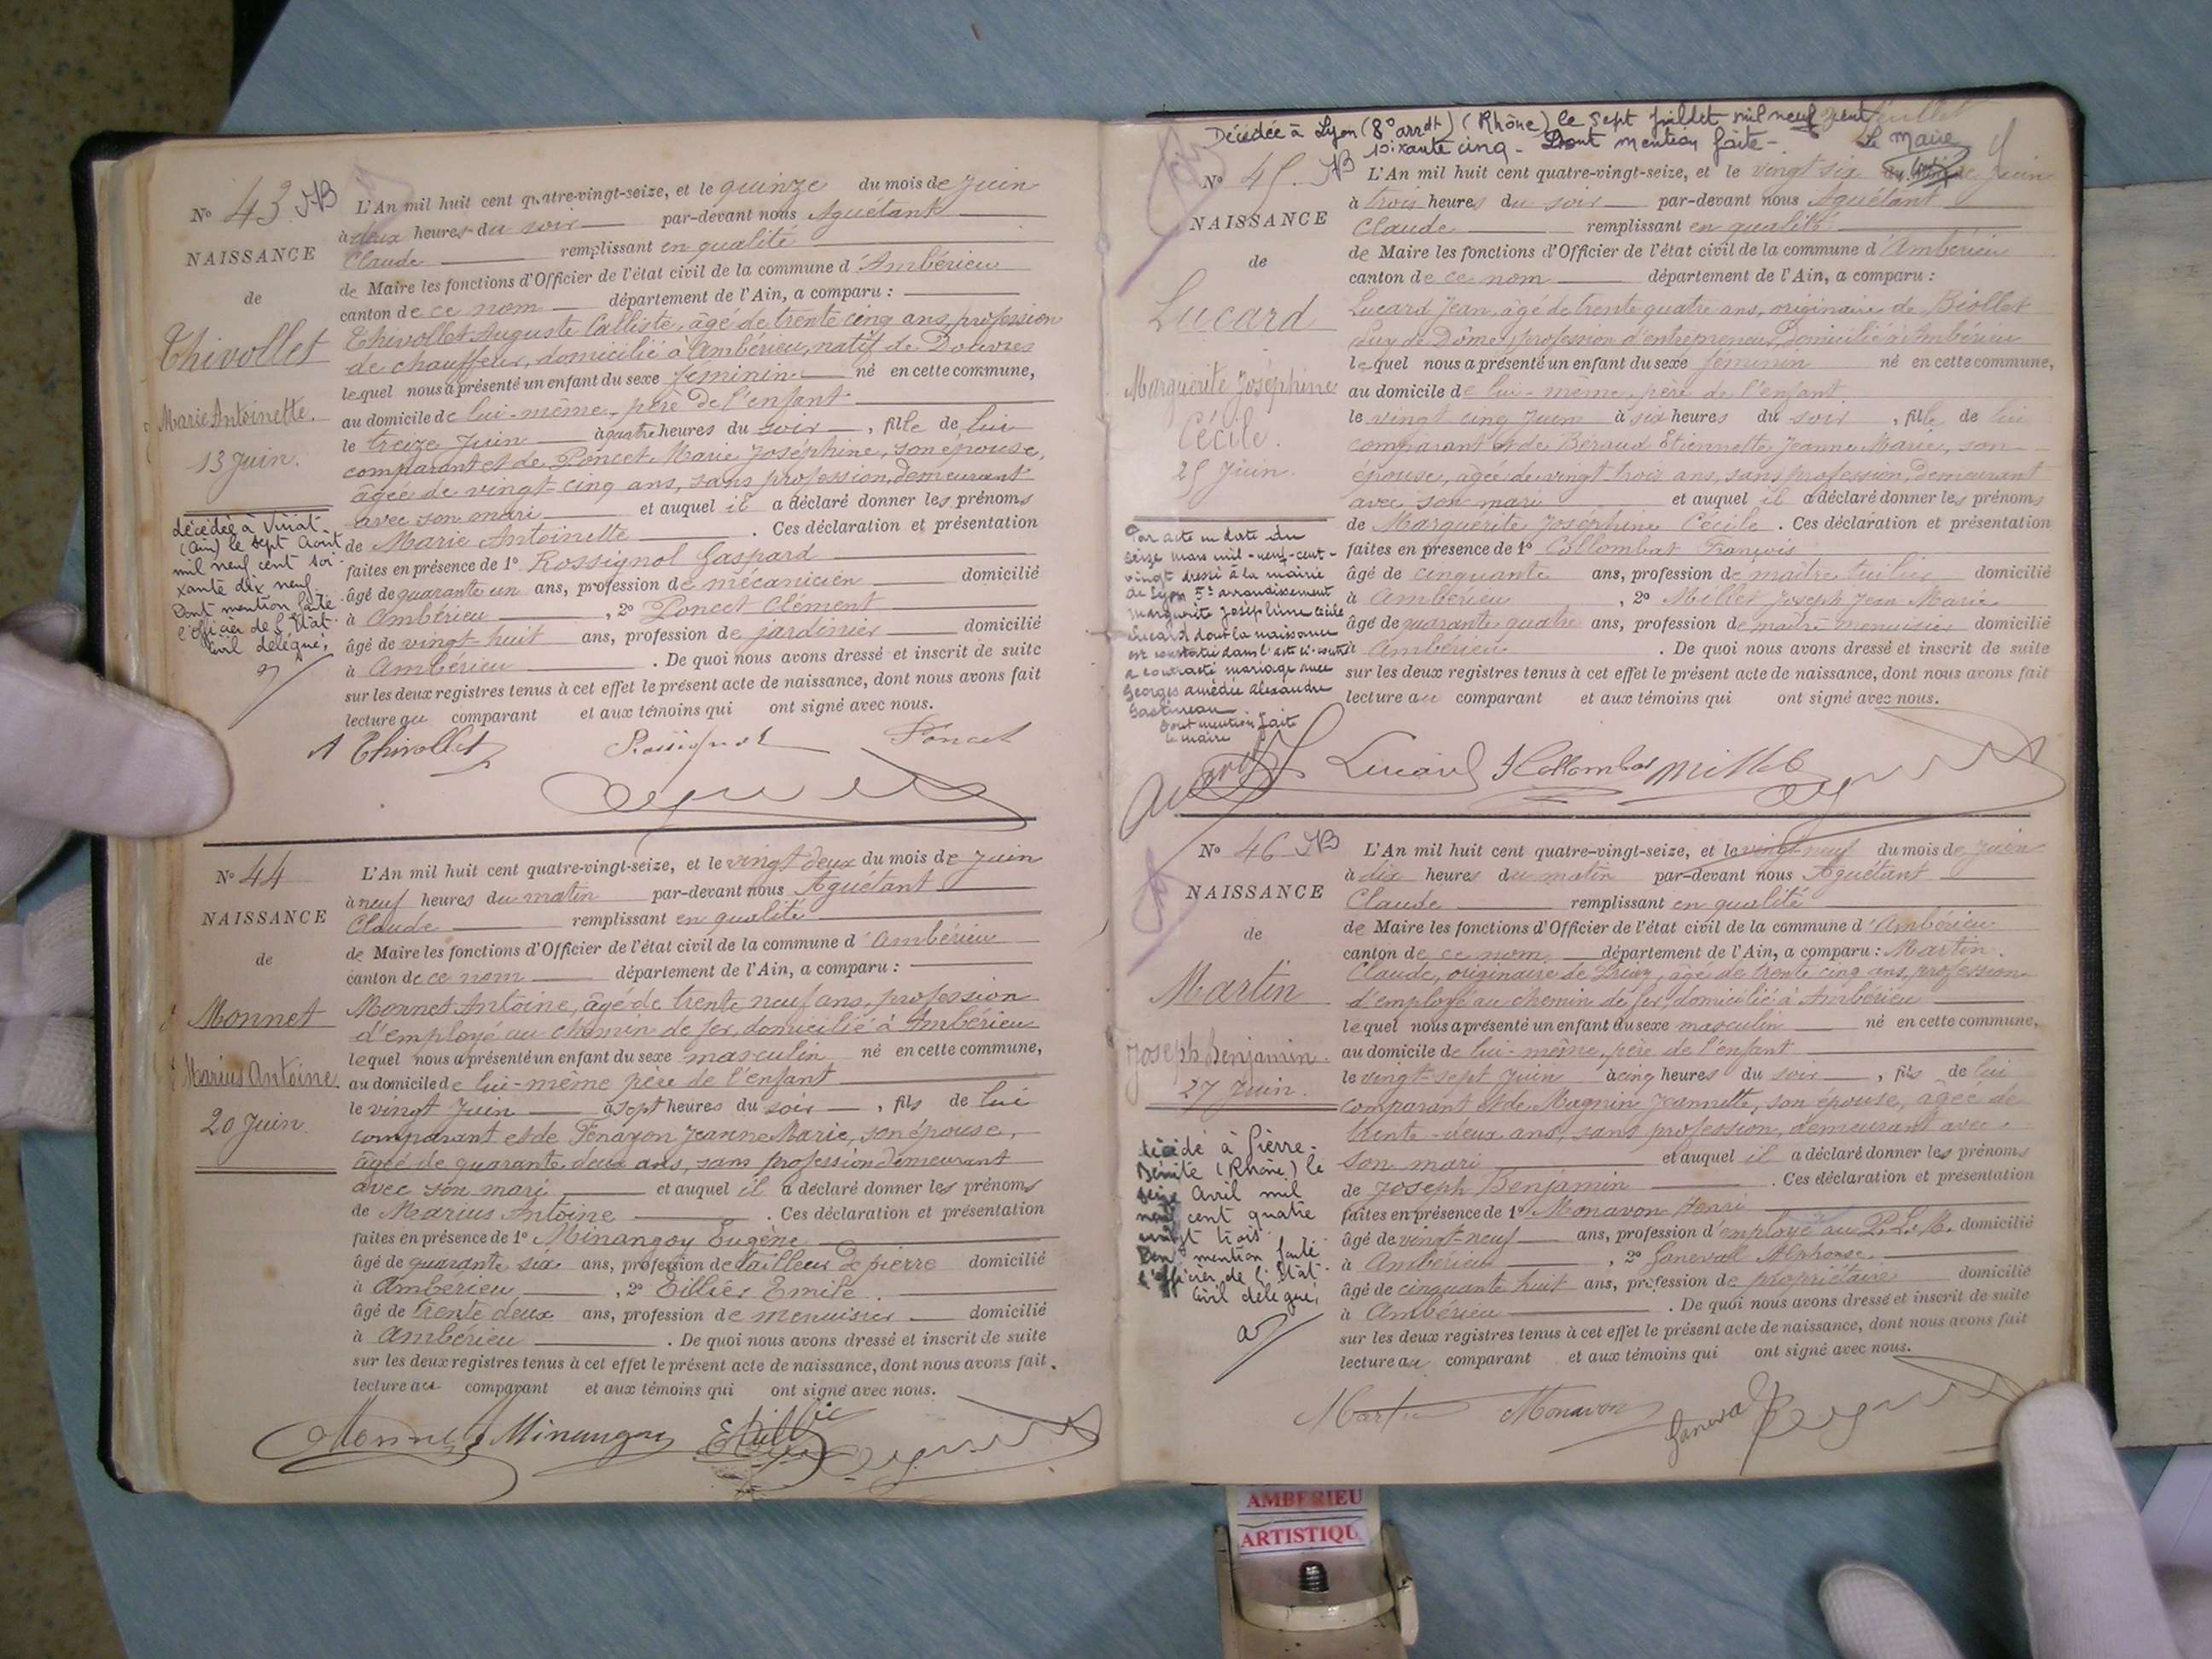 Nº 43 NB
NAISSANCE
de
Thivollet
Marie Antoinette.
13 Juin.
décédée à Viriat
(Ain) le sept Août
mil neuf cent soi
xante dix neuf
Dont mention faite
l'officier de l'Etat
Civil délégué,
L'An mil huit cent quatre-vingt-seize, et le quinze du mois de Juin
à deux heures du soir par-devant nous Aguétant
Claude remplissant en qualité
de Maire les fonctions d'Officier de l'état civil de la commune d'Ambérieu
canton de ce nom département de l'Ain, a comparu :
Thivollet Auguste Calliste, âgé de trente cinq ans, profession
de chauffeur, domicilié à Ambérieu, natif de Douvres
lequel nous a présenté un enfant du sexe féminin né en cette commune,
au domicile de lui-même, père de l'enfant
le treize Juin à quatre heures du soir, fille de lui
comparant et de Poncet Marie Joséphine, son épouse,
âgée de vingt-cinq ans, sans profession, demeurant
avec son mari et auquel il a déclaré donner les prénoms
de Marie Antoinette. Ces déclaration et présentation
faites en présence de 1º Rossignol Gaspard
âgé de quarante un ans, profession de mécanicien domicilié
à Ambérieu, 2º Poncet Clément
âgé de vingt huit ans, profession de jardinier domicilié
à Ambérieu. De quoi nous avons dressé et inscrit de suite
sur les deux registres tenus à cet effet le présent acte de naissance, dont nous avons fait
lecture au comparant et aux témoins qui ont signé avec nous.
A Thivollet Rossignol Poncet
Nº 44
NAISSANCE
de
Monnet
Marius Antoine.
20 Juin.
L'An mil huit cent quatre-vingt-seize, et le vingt deux du mois de Juin
à neuf heures du matin par-devant nous Aguétant
Claude remplissant en qualité
de Maire les fonctions d'Officier de l'état civil de la commune d'Ambérieu
canton de ce nom département de l'Ain, a comparu :
Monnet Antoine, âgé de trente neuf ans, profession
d'employé au chemin de fer, domicilié à Ambérieu
lequel nous a présenté un enfant du sexe masculin né en cette commune,
au domicile de lui-même père de l'enfant
le vingt Juin à sept heures du soir, fils de lui
comparant et de Jeanne Marie, son épouse,
âgée de quarante deux ans, sans profession demeurant
avec son mari et auquel il a déclaré donner les prénoms
de Marius Antoine. Ces déclaration et présentation
faites en présence de 1º Minangoy Eugène
âgé de quarante six ans, profession de tailleur de pierre domicilié
à Ambérieu, 2º Tillier Emile.
âgé de trente deux ans, profession de menuisier domicilié
à Ambérieu. De quoi nous avons dressé et inscrit de suite
sur les deux registres tenus à cet effet le présent acte de naissance, dont nous avons fait.
lecture au comparant et aux témoins qui ont signé avec nous.
Monnet Minangoy
Décédée à Lyon (8º arrdt) (Rhône) le sept juillet mil neuf cent
soixante cinq - Dont mention faite - Le Maire
Nº 45. NB
NAISSANCE
de
Lucard
Marguerite Joséphine
Cécile.
25 Juin.
Par acte en date du
seize mars mil-neuf-cent-
vingt dressé à la mairie
de Lyon 5e arrondissement
Marguerite Joséphine Cécile
Lucard dont la naissance
est constatée dans l'acte ci-contre
a contracté mariage avec
Georges Amédée Alexandre
Gastineau
Dont mention faite
le maire
L'An mil huit cent quatre-vingt-seize, et le vingt six Juin
à trois heures du soir par-devant nous Aguétant
Claude remplissant en qualité
de Maire les fonctions d'Officier de l'état civil de la commune d'Ambérieu
canton de ce nom département de l'Ain, a comparu :
Lucard Jean, âgé de trente quatre ans, originaire de Biollet
Puy de Dôme, profession d'entrepreneur, domicilié à Ambérieu
lequel nous a présenté un enfant du sexe féminin né en cette commune,
au domicile de lui-même, père de l'enfant
le vingt cinq Juin à six heures du soir, fille de lui
comparant et de Béraud Etiennette Jeanne Marie, son
épouse, âgée de vingt trois ans, sans profession, demeurant
avec son mari et auquel il a déclaré donner les prénoms
de Marguerite Joséphine Cécile. Ces déclaration et présentation
faites en présence de 1º Collombat François
âgé de cinquante ans, profession de maître tuilier domicilié
à Ambérieu, 2º Millet Joseph Jean Marie
âgé de quarante quatre ans, profession de maître menuisier domicilié
à Ambérieu. De quoi nous avons dressé et inscrit de suite
sur les deux registres tenus à cet effet le présent acte de naissance, dont nous avons fait
lecture au comparant et aux témoins qui ont signé avec nous.
Lucard Collombat Millet
Nº 46 NB
NAISSANCE
de
Martin
Joseph Benjamin.
27 Juin.
décédé à Pierre-
Bénite (Rhône) le
seize Avril mil
neuf cent quatre
vingt trois
Dont mention faite
l'officier de l'Etat
Civil délégué,
L'An mil huit cent quatre-vingt-seize, et le vingt-neuf du mois de Juin
à dix heures du matin par-devant nous Aguétant
Claude remplissant en qualité
de Maire les fonctions d'Officier de l'état civil de la commune d'Ambérieu
canton de ce nom département de l'Ain, a comparu : Martin
Claude, originaire de âgé de trente cinq ans, profession
d'employé au chemin de fer, domicilié à Ambérieu
lequel nous a présenté un enfant du sexe masculin né en cette commune,
au domicile de lui-même, père de l'enfant
le vingt-sept Juin à cinq heures du soir, fils de lui
comparant et de Magnin Jeannette, son épouse, âgée de
trente-deux ans, sans profession, demeurant avec
son mari et auquel il a déclaré donner les prénoms
de Joseph Benjamin. Ces déclaration et présentation
faites en présence de 1º Monavon Henri
âgé de vingt-neuf ans, profession d'employé au P.L.M. domicilié
à Ambérieu, 2º Ganeval Alphonse
âgé de cinquante huit ans, profession de propriétaire domicilié
à Ambérieu. De quoi nous avons dressé et inscrit de suite
sur les deux registres tenus à cet effet le présent acte de naissance, dont nous avons fait
lecture au comparant et aux témoins qui ont signé avec nous.
Martin Monavon Ganeval
AMBERIEU
ARTISTIQU